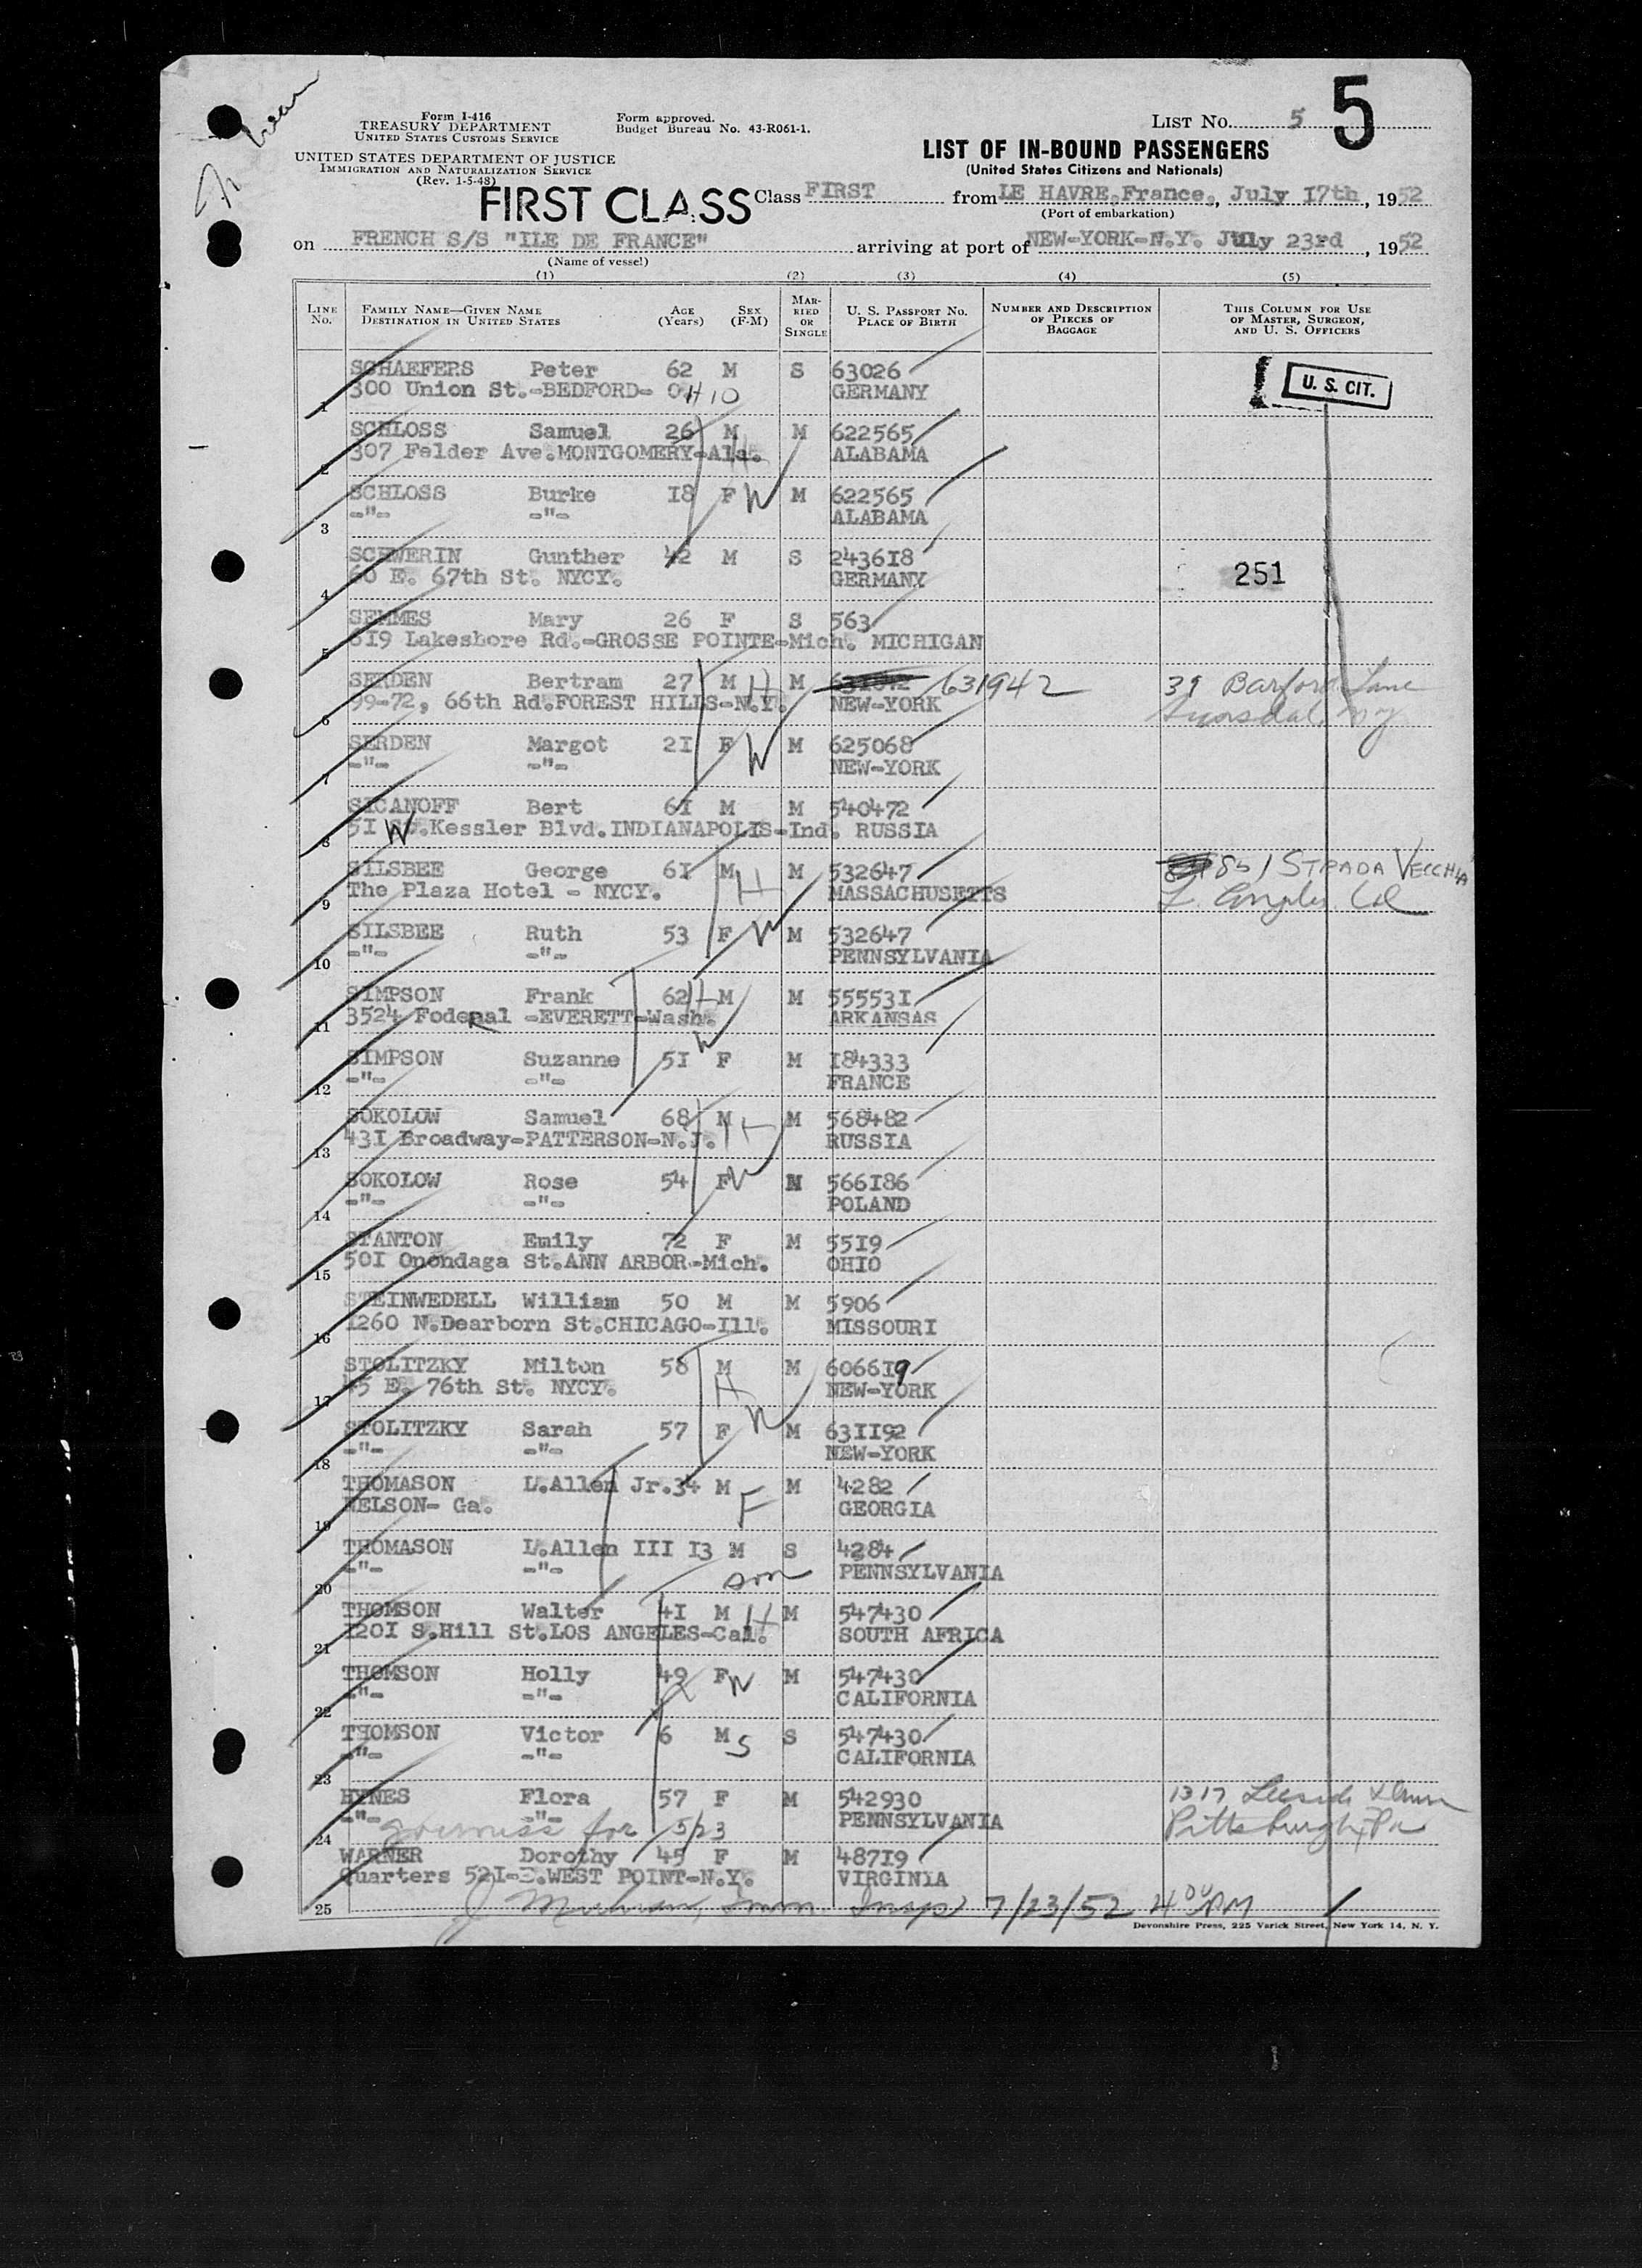 5
Form I-416
TREASURY DEPARTMENT
UNITED STATES CUSTOMS SERVICE
Form approved.
Budget Bureau No. 43-R061-1.
LIST NO. 5
UNITED STATES DEPARTMENT OF JUSTICE
IMMIGRATION AND NATURALIZATION SERVICE
(Rev. 1-5-48)
LIST OF IN-BOUND PASSENGERS
(United States Citizens and Nationals)
FIRST CLASS Class FIRST from LE HAVRE, France, July 17th, 1952
(Port of embarkation)
on FRENCH S/S "ILE DE FRANCE" arriving at port of NEW-YORK-N.Y. July 23rd, 1952
(Name of vessel)
(1) (2) (3) (4) (5)
LINE NO. FAMILY NAME—GIVEN NAME DESTINATION IN UNITED STATES AGE (Years) SEX (F-M) MARRIED OR SINGLE U. S. PASSPORT NO. PLACE OF BIRTH NUMBER AND DESCRIPTION OF PIECES OF BAGGAGE THIS COLUMN FOR USE OF MASTER, SURGEON, AND U. S. OFFICERS
SCHAEFERS Peter 62 M S 63026 U. S. CIT.
1 300 Union St.-BEDFORD- OHIO GERMANY
SCHLOSS Samuel 26 M M 622565
2 307 Felder Ave.MONTGOMERY-Ala. H ALABAMA
SCHLOSS Burke 18 F W M 622565
3 -"- -"- ALABAMA
SCHWERIN Gunther 42 M S 243618
4 60 E. 67th St. NYCY. GERMANY 251
SEMMES Mary 26 F S 563
5 619 Lakeshore Rd.-GROSSE POINTE-Mich. MICHIGAN
SERDEN Bertram 27 M H M 631942 39 Barford Lane
6 99-72, 66th Rd.FOREST HILLS-N.Y. NEW-YORK NY
SERDEN Margot 21 F W M 625068
7 -"- -"- NEW-YORK
SICANOFF Bert 61 M M 540472
8 51 W.Kessler Blvd.INDIANAPOLIS-Ind. RUSSIA
SILSBEE George 61 M H M 532647 851 STRADA VECCHIA
9 The Plaza Hotel - NYCY. MASSACHUSETTS L. Angeles Cal
SILSBEE Ruth 53 F W M 532647
10 -"- -"- PENNSYLVANIA
SIMPSON Frank 62 H M M 555531
11 3524 Foderal -EVERETT-Wash. ARKANSAS
SIMPSON Suzanne 51 W F M 184333
12 -"- -"- FRANCE
SOKOLOW Samuel 68 M H M 568482
13 431 Broadway-PATTERSON-N.J. RUSSIA
SOKOLOW Rose 54 F W M 566186
14 -"- -"- POLAND
STANTON Emily 72 F M 5519
15 501 Onondaga St.ANN ARBOR-Mich. OHIO
STEINWEDELL William 50 M M 5906
16 1260 N.Dearborn St.CHICAGO-Ill. MISSOURI
STOLITZKY Milton 58 M M 606619
17 45 E. 76th St. NYCY. H NEW-YORK
STOLITZKY Sarah 57 F W M 631192
18 -"- -"- NEW-YORK
THOMASON L.Allen Jr.34 M F M 4282
19 NELSON- Ga. GEORGIA
THOMASON L.Allen III 13 M S 4284
20 -"- -"- son PENNSYLVANIA
THOMSON Walter 41 M H M 547430
21 1201 S.Hill St.LOS ANGELES-Cal. SOUTH AFRICA
THOMSON Holly 49 F W M 547430
22 -"- -"- CALIFORNIA
THOMSON Victor 6 M S S 547430
23 -"- -"- CALIFORNIA
HYNES Flora 57 F M 542930 1317
24 -"- -"- governess for 5/23 PENNSYLVANIA Pittsburgh, Pa
WARNER Dorothy 45 F M 48719
Quarters 521-E.WEST POINT-N.Y. VIRGINIA
25 Imm Insp 7/23/52 4 00 PM
Devonshire Press, 225 Varick Street, New York 14, N. Y.